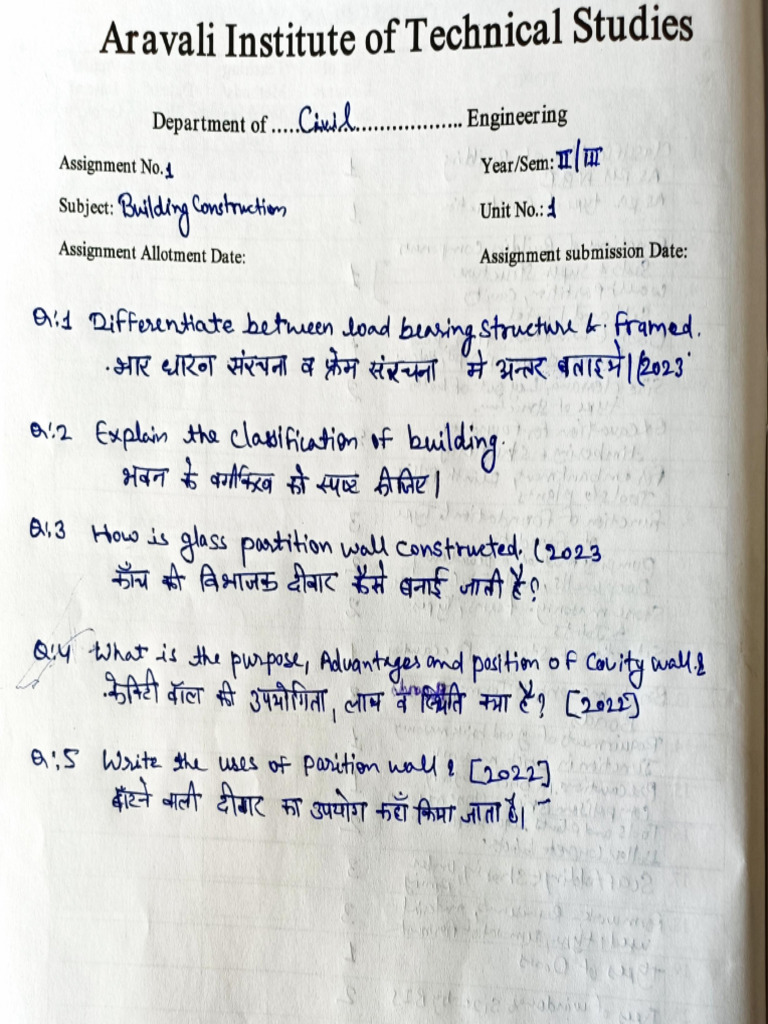 Aravali Institute of Technical Studies
Department of .....Civil.................. Engineering
Assignment No. 1
Year/Sem: II/III
Subject: Building Construction
Unit No.: 1
Assignment Allotment Date:
Assignment submission Date:
Q:1 Differentiate between load bearing structure & framed.
भार धारन संरचना व फ्रेम संरचना मे अन्तर बताइये। (2023
Q:2 Explain the classification of building.
भवन के को स्पष्ट कीजिए।
Q:3 How is glass partition wall constructed. (2023
काँच की विभाजक दीवार कैसे बनाई जाती है?
Q:4 What is the purpose, Advantages and position of Cavity wall?
केविटी वॉल की उपयोगिता, लाभ व स्थिति क्या है? [2022]
Q:5 Write the uses of parition wall? [2022]
बाँटने वाली दीवार का उपयोग कहाँ किया जाता है।